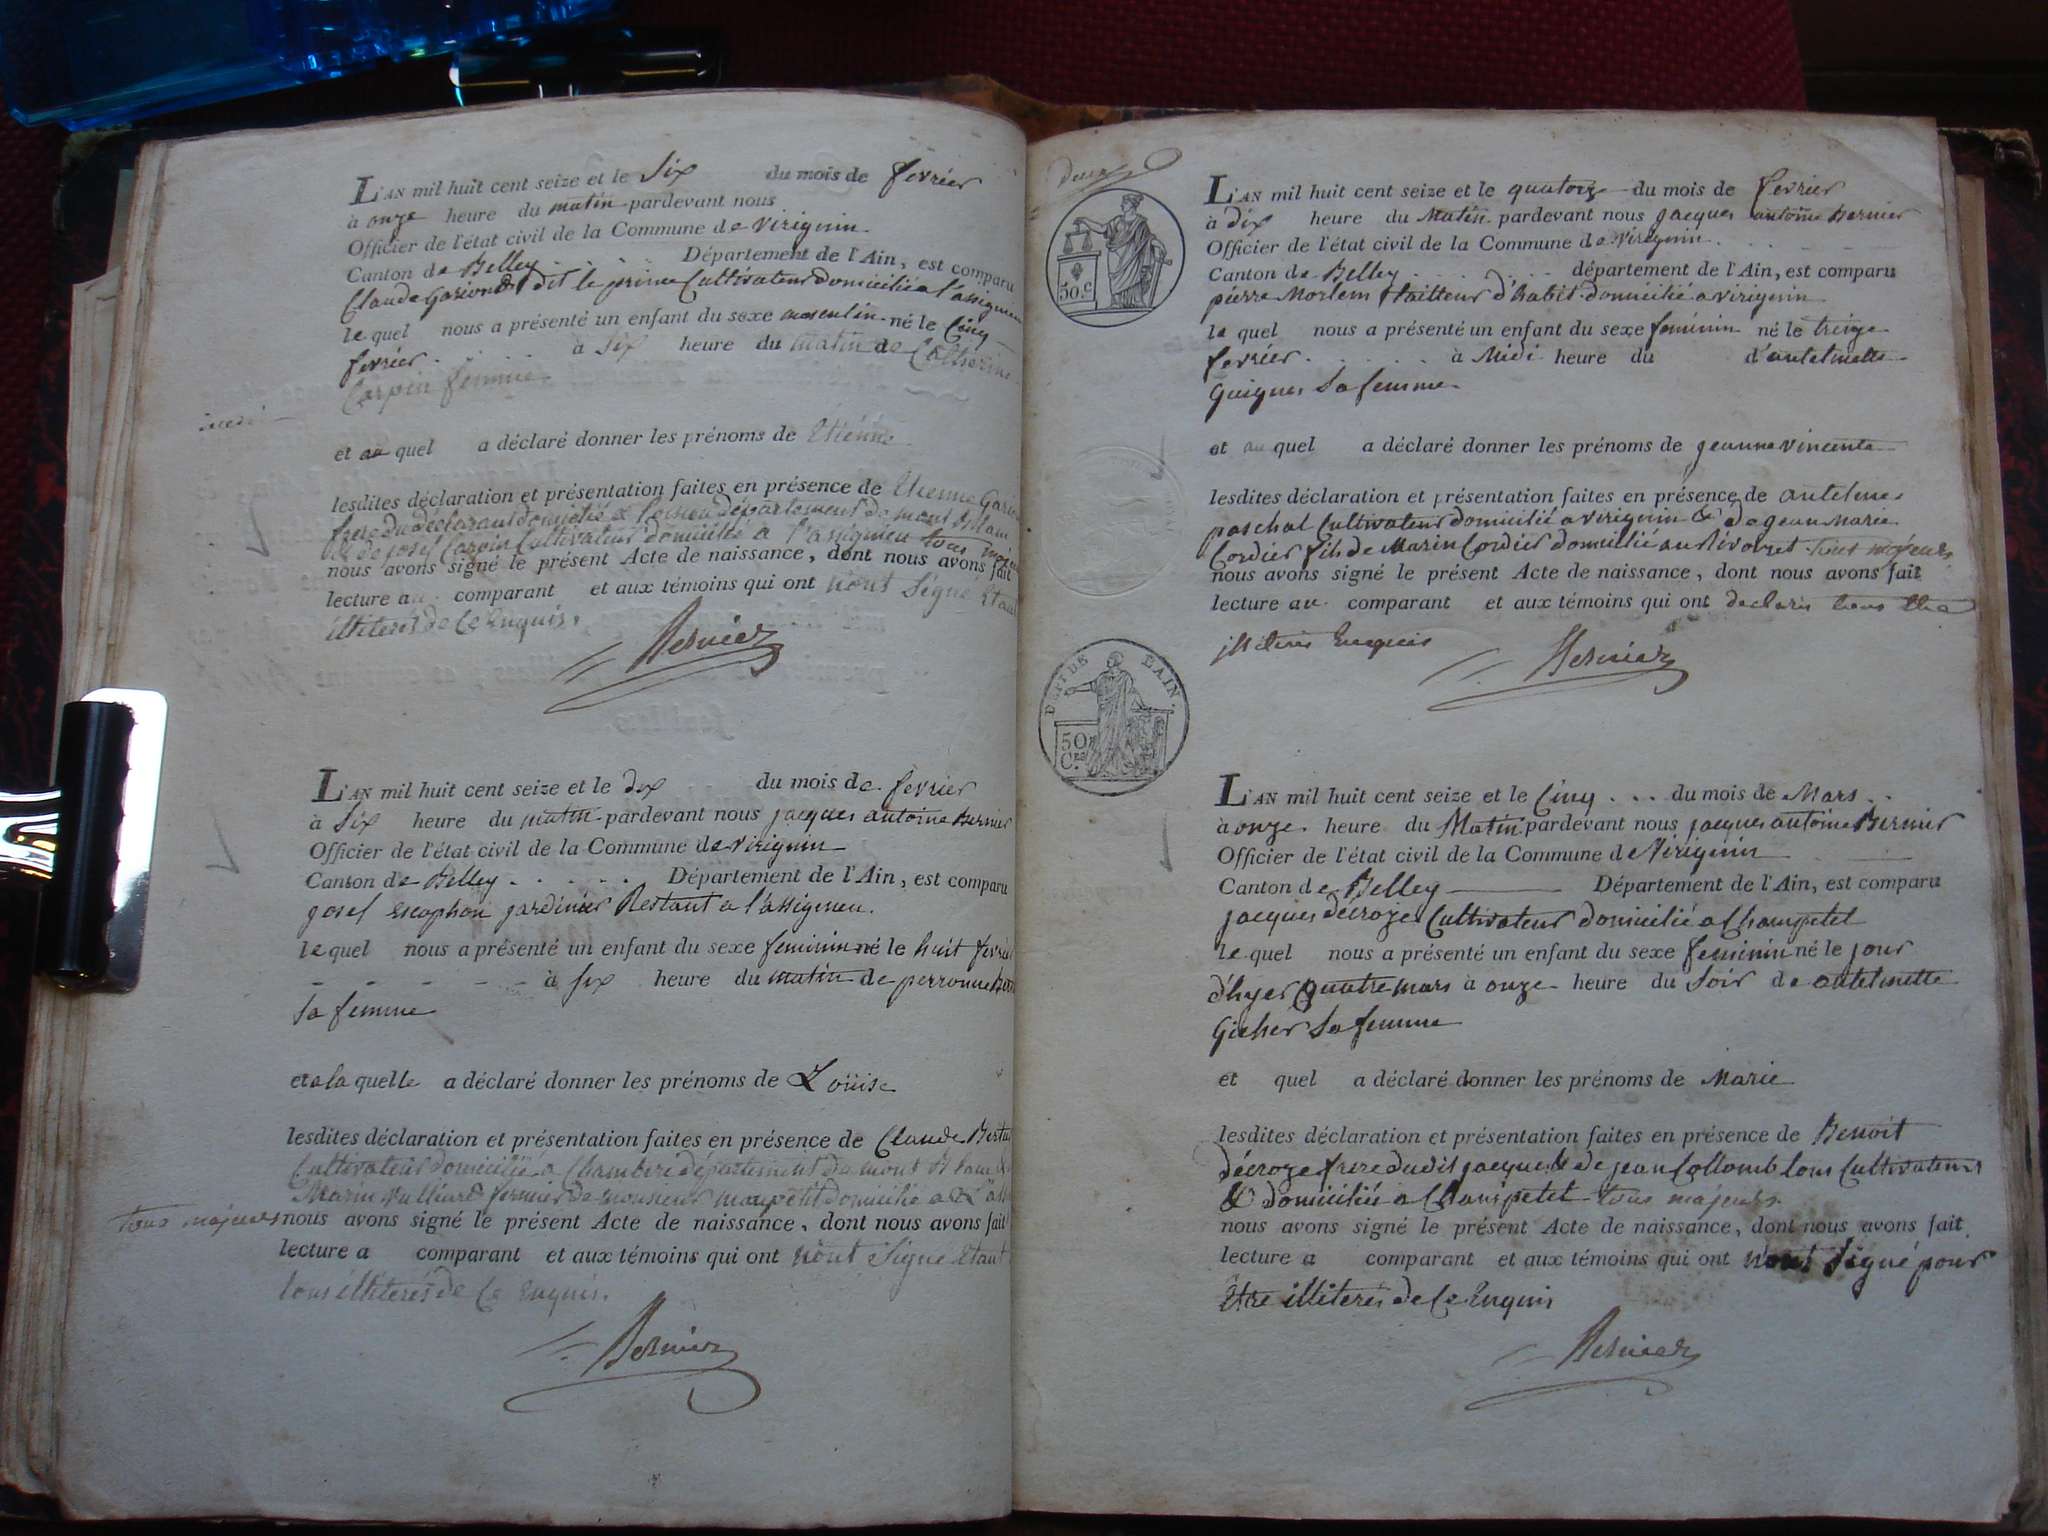 L'AN mil huit cent seize et le Six du mois de fevrier
à onze heure du matin pardevant nous
Officier de l'état civil de la Commune de virignin
Canton de Belley Département de l'Ain, est comparu
Claude dit le prince Cultivateur domicilié a l'assignieu
le quel nous a présenté un enfant du sexe masculin né le Cinq
fevrier à Six heure du matin de Catherine
Carpin femme
et au quel a déclaré donner les prénoms de Etienne
lesdites déclaration et présentation faites en présence de Etienne
frere du declarant domicilié a département du mont Blanc
& de josef Carpin Cultivateur domicilié a l'assignieu tous
nous avons signé le présent Acte de naissance, dont nous avons fait
lecture au comparant et aux témoins qui ont nont Signé Etant
illiterés de Ce Enquis.
Bernier
L'AN mil huit cent seize et le dix du mois de fevrier
à Six heure du matin pardevant nous jacques antoine Bernier
Officier de l'état civil de la Commune de virignin
Canton de Belley Département de l'Ain, est comparu
josef Escophon jardinier Restant a l'assignieu.
le quel nous a présenté un enfant du sexe feminin né le huit fevrier
à six heure du matin de perronne
Sa femme
et a la quelle a déclaré donner les prénoms de Loüise
lesdites déclaration et présentation faites en présence de Claude
Cultivateur domicilié a Chamberi département du mont Blanc &
Marin fermier de monsieur maupetit domicilié a
tous majeurs nous avons signé le présent Acte de naissance, dont nous avons fait
lecture a comparant et aux témoins qui ont nont Signe Etant
tous illiterés de Ce Enquis.
Bernier
50.c
DEPT DE L'AIN.
50 Ces
L'AN mil huit cent seize et le quatorze du mois de fevrier
à dix heure du Matin pardevant nous jacques antoine Bernier
Officier de l'état civil de la Commune de Virignin
Canton de Belley département de l'Ain, est comparu
pierre Mortem tailleur d'habit domicilié a virignin
le quel nous a présenté un enfant du sexe feminin né le treize
fevrier à Midi heure du d'antelmette
Guigues Sa femme
et au quel a déclaré donner les prénoms de jeanne vincente
lesdites déclaration et présentation faites en présence de antelme
paschal Cultivateur domicilié a virignin & de jean Marie
Cordier fils de Marin Cordier domicilié au tous majeurs
nous avons signé le présent Acte de naissance, dont nous avons fait
lecture au comparant et aux témoins qui ont declaris tous etre
illiteris Enquis
Bernier
L'AN mil huit cent seize et le Cinq du mois de Mars
à onze heure du Matin pardevant nous jacques antoine Bernier
Officier de l'état civil de la Commune de Virignin
Canton de Belley Département de l'Ain, est comparu
jacques décroze Cultivateur domicilié a Champetel
le quel nous a présenté un enfant du sexe feminin né le jour
d'hyer quatre mars à onze heure du Soir de antelmette
Sa femme
et quel a déclaré donner les prénoms de Marie
lesdites déclaration et présentation faites en présence de Benoit
décroze frere dudit jacque & de jean Collomb tous Cultivateurs
& domiciliés a Champetel tous majeurs.
nous avons signé le présent Acte de naissance, dont nous avons fait
lecture a comparant et aux témoins qui ont nont Signé pour
être illiterés de Ce Enquis
Bernier